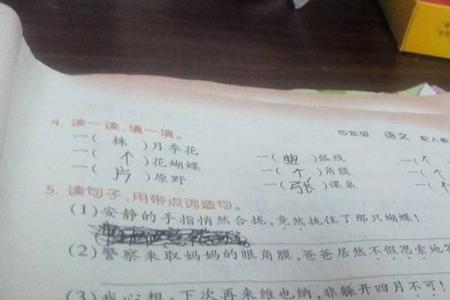 四年级 语文 配人教
4. 读一读,填一填。
一( 株 )月季花
一( 个 )花蝴蝶 一( )弧线 一(个
一( 片 )原野 一( 个 )角膜 一(
一( 张 )课桌 一(
5. 读句子,用带点词语造句。
(1)安静的手指悄然合拢,竟然拢住了那只蝴蝶!
(2)警察来取妈妈的眼角膜,爸爸居然不假思索地答
(3)我心想,下次再来维也纳,非躲开四月不可!